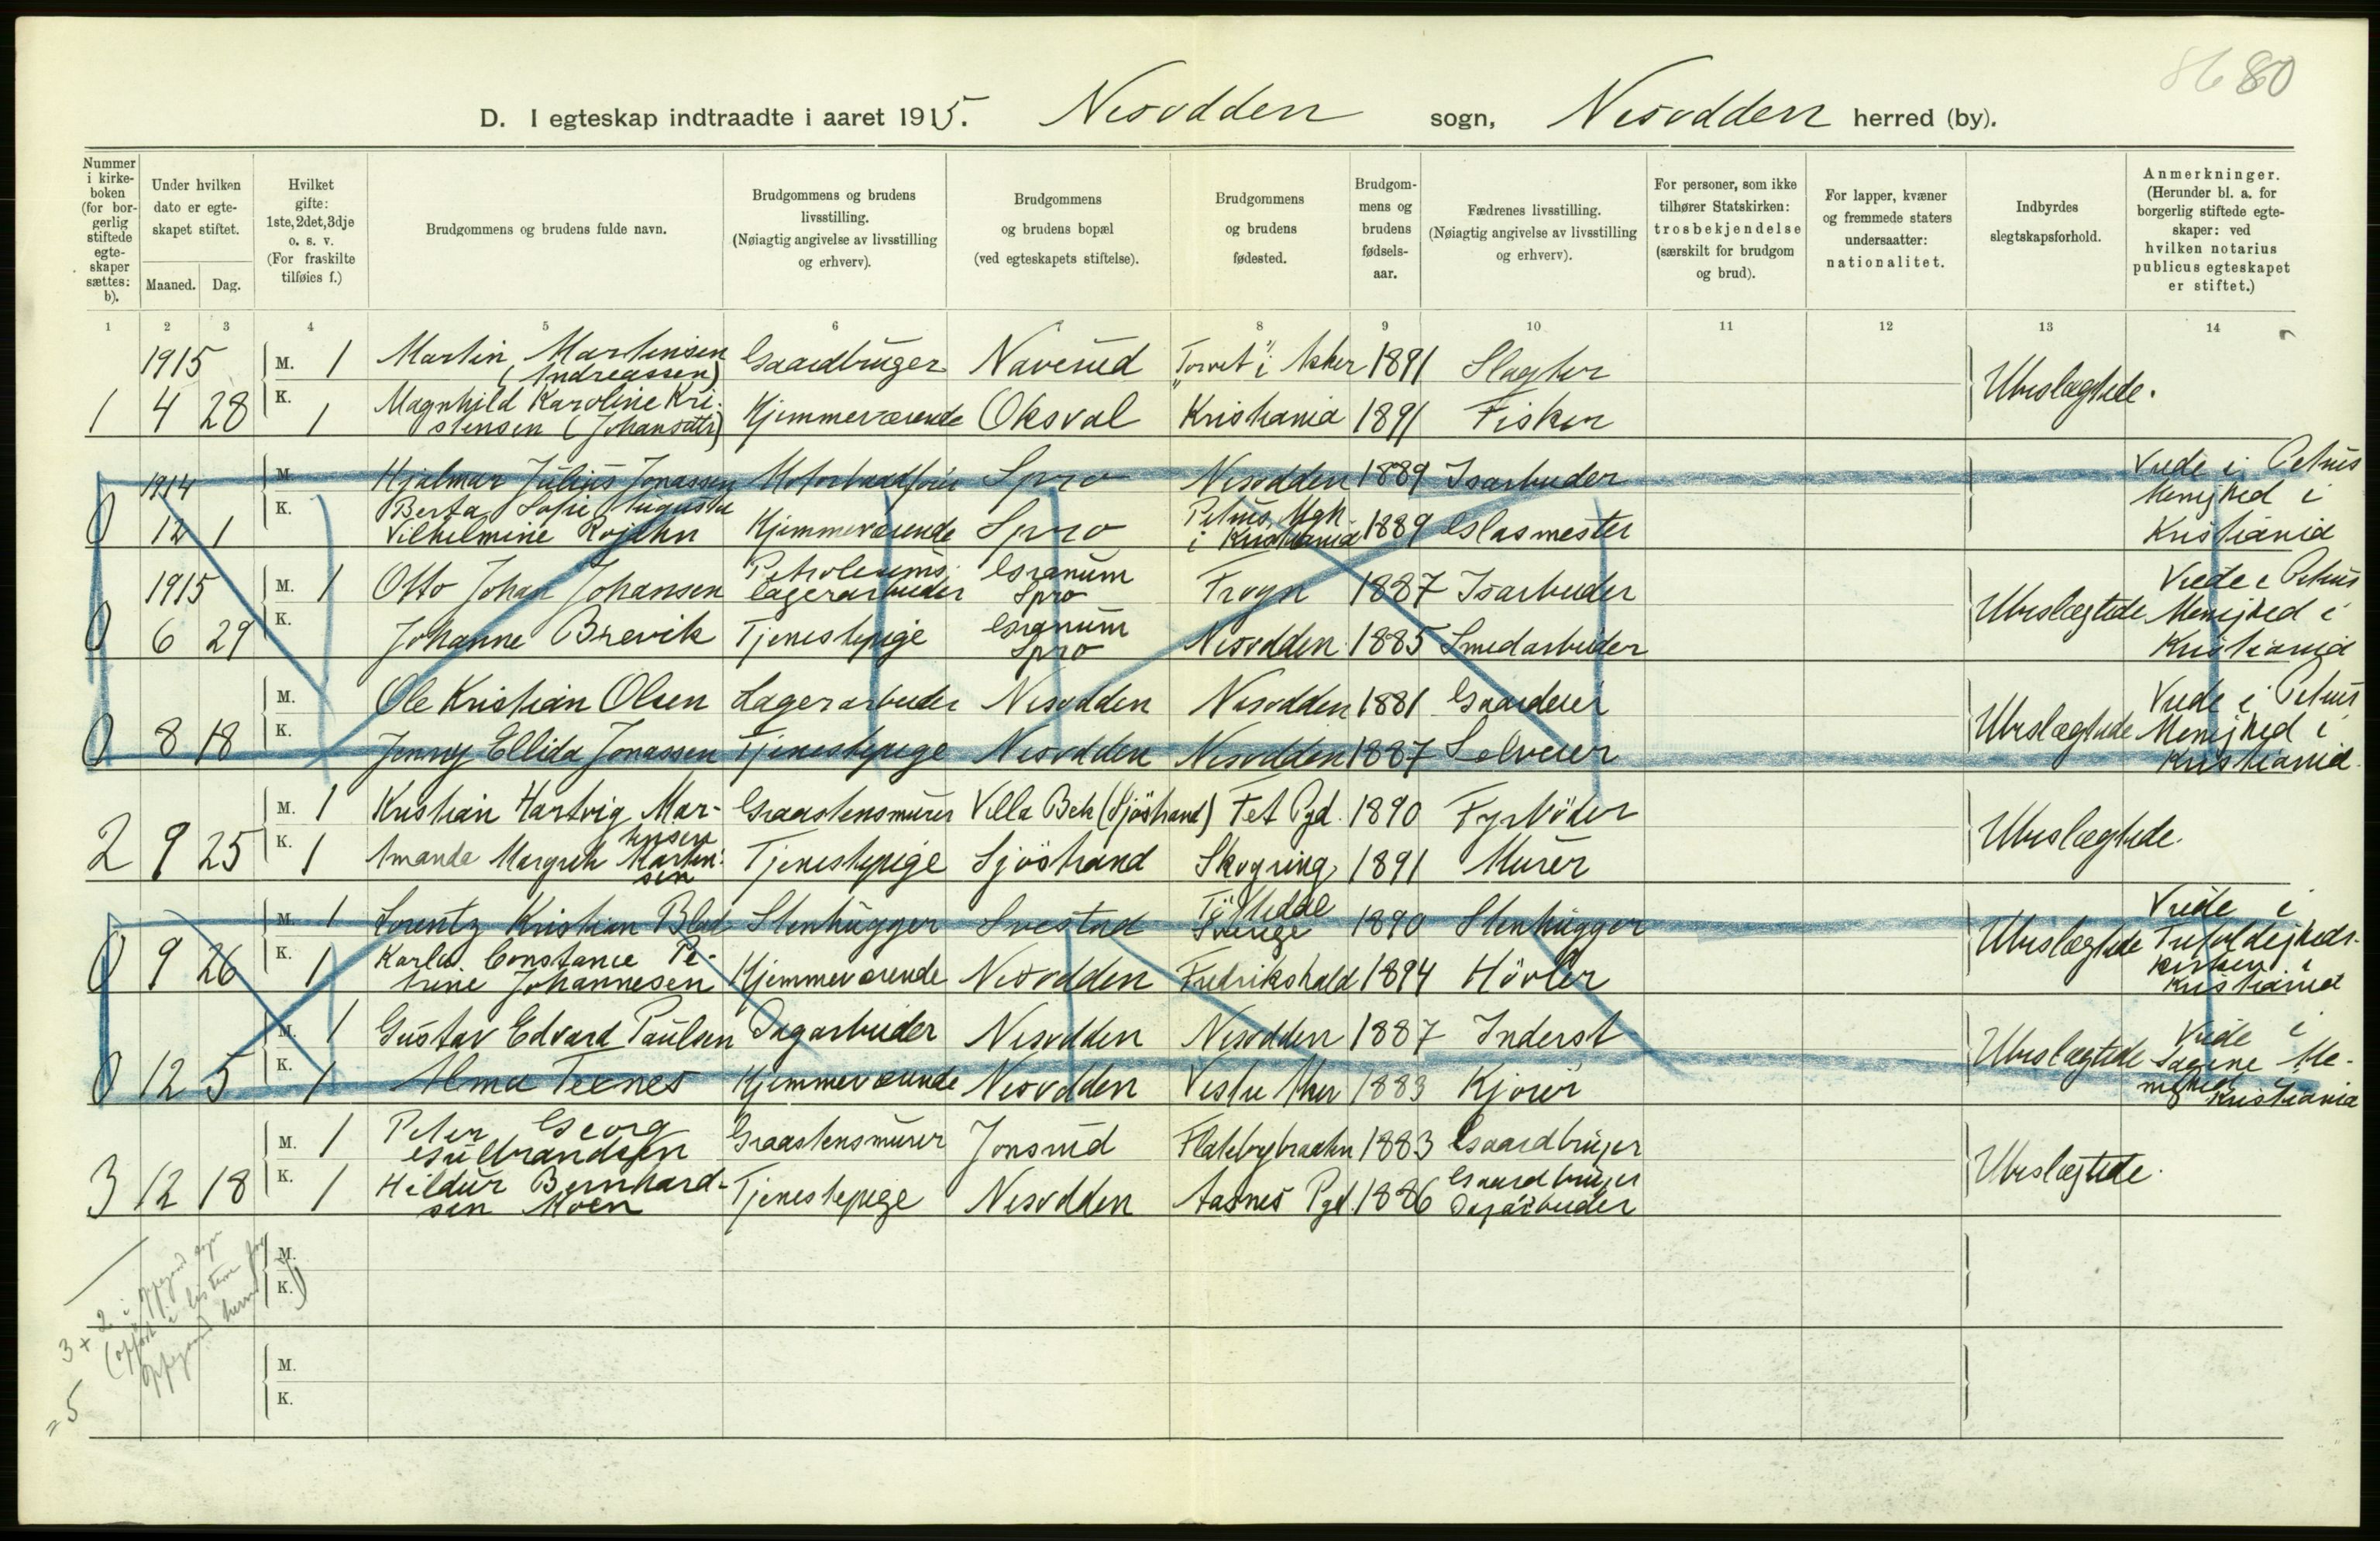 80
D. I egteskap indtraadte i aaret 1915. Nesodden sogn, Nesodden herred (by).
Nummer i kirke-boken (for bor-gerlig stiftede egte-skaper sættes: b).
Under hvilken dato er egte-skapet stiftet.
Maaned. Dag.
Hvilket gifte: 1ste, 2det, 3dje o. s. v. (For fraskilte tilføies f.)
Brudgommens og brudens fulde navn.
Brudgommens og brudens livsstilling. (Nøiagtig angivelse av livsstilling og erhverv).
Brudgommens og brudens bopæl (ved egteskapets stiftelse).
Brudgommens og brudens fødested.
Brudgom-mens og brudens fødsels-aar.
Fædrenes livsstilling. (Nøiagtig angivelse av livsstilling og erhverv).
For personer, som ikke tilhører Statskirken: trosbekjendelse (særskilt for brudgom og brud).
For lapper, kvæner og fremmede staters undersaatter: nationalitet.
Indbyrdes slegtskapsforhold.
Anmerkninger. (Herunder bl. a. for borgerlig stiftede egte-skaper: ved hvilken notarius publicus egteskapet er stiftet.)
1 2 3 4 5 6 7 8 9 10 11 12 13 14
1915 M. 1 Martin Martinsen (Andreassen) Gaardbruger Naverud "Torvet" i Asker 1891 Slagter Ubeslægtede.
1 4 28 K. 1 Magnhild Karoline Kristensen (Johansdtr) Hjemmeværende Oksval Kristiania 1891 Fisker
1914 M. Hjalmar Julius Jonassen Motorbaadfører Spro Nesodden 1889 Isarbeider Viede i Petrus Menighed i Kristiania
0 12 1 K. Berta Sofie Augusta Vilhelmine Rojahn Hjemmeværende Spro Petrus Mgh. i Kristiania 1889 Glasmester
1915 M. 1 Otto Johan Johansen Petroleums-lagerarbeider Granum Spro Frogn 1887 Isarbeider Ubeslægtede Viede i Petrus Menighed i Kristiania
0 6 29 K. Johanne Brevik Tjenestepige Granum Spro Nesodden 1885 Smedarbeider
M. Ole Kristian Olsen Lagerarbeider Nesodden Nesodden 1881 Gaardeier Ubeslægtede Viede i Petrus Menighed i Kristiania.
0 8 18 K. Jenny Ellida Jonassen Tjenestepige Nesodden Nesodden 1887 Selveier
M. 1 Kristian Hartvig Martinsen Graastensmurer Villa Bek (Sjöstrand) Fet Pgd. 1890 Fyrböder Ubeslægtede.
2 9 25 K. 1 Amanda Margrete Martinsen Tjenestepige Sjöstrand Skogring 1891 Murer
M. 1 Lorentz Kristian Blad Stenhugger Svestad Sverige 1890 Stenhugger Ubeslægtede Viede i Trefoldigheds-kirken i Kristiania
0 9 26 K. 1 Karla Constance Petrine Johannesen Hjemmeværende Nesodden Fredrikshald 1894 Hövler
M. 1 Gustav Edvard Paulsen Dagarbeider Nesodden Nesodden 1887 Inderst Ubeslægtede Viede i Sagene Menighed Kristiania
0 12 5 K. 1 Alma Teenes Hjemmeværende Nesodden Vestre Aker 1883 Kjører
M. 1 Peter Georg Gulbrandsen Graastensmurer Jonsrud 1883 Gaardbruger Ubeslægtede.
3 12 18 K. 1 Hildur Bernhardsen Moen Tjenestepige Nesodden Aasnes Pgd. 1886 Gaardbruger Dagarbeider
M.
K.
3 + 2 i Oppegaard sogn
(opført i listerne for
Oppegaard herred)
= 5
M.
K.